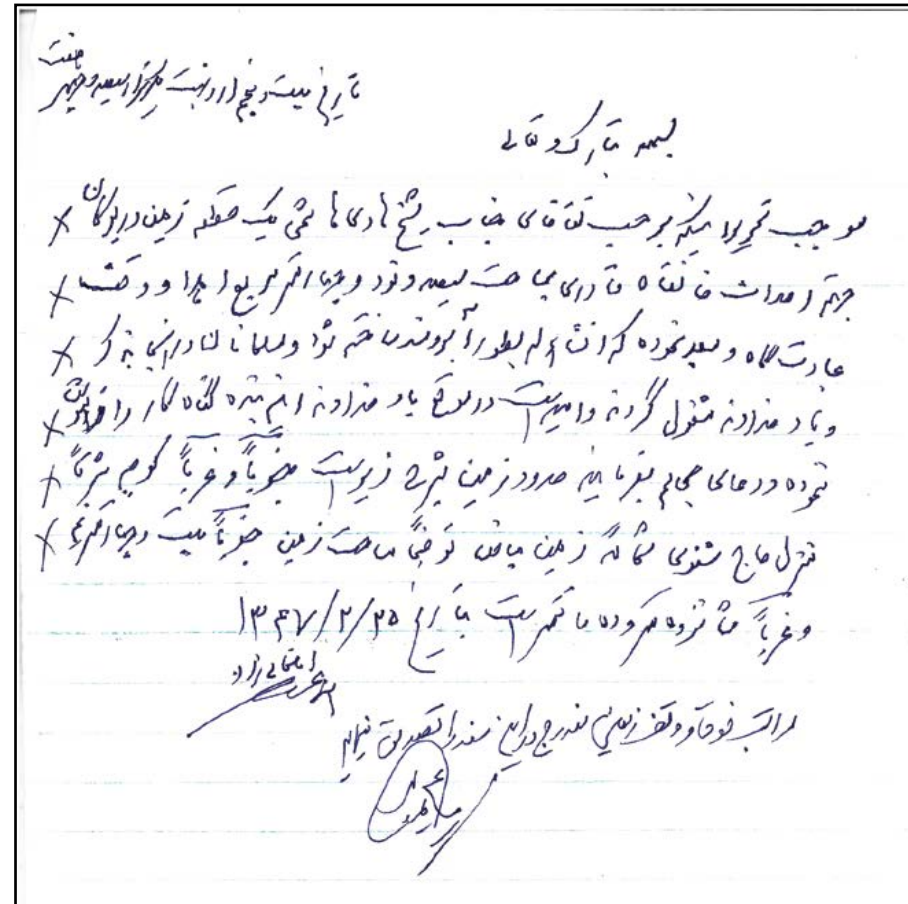 تاریخ بیست و پنجم اردیبهشت یکهزار سیصد و چهل هفت
بسمه تبارک و تعالی
موجب تحریر اینکه بر حسب تقاضای جناب شیخ هادی هاشمی یک قطعه زمین در بوکان
جهة احداث خانقاه قادری بمساحت سیصد و نود و چهار متر مربع اهدا و وقف
عبادت گاه و نموده که انشاءالله بطور آبرومند ساخته شود و مسلمانان در آنجا بذکر
و یاد خداوند مشغول گردند و امید است در موقع یاد خداوند این بنده گناه کار را فراموش
نموده و دعای بفرمایند حدود زمین بشرح زیر است جنوباً و غرباً کوچه شرقاً
منزل حاج شمالاً زمین توضیحاً مساحت زمین جنوباً بیست و چهار متر
و غرباً شانزده متر و ده سانتیمتر است بتاریخ ۱۳۴۷/۲/۲۵
مراتب فوق و وقف زمین مندرج در این سند را تصدیق مینمایم